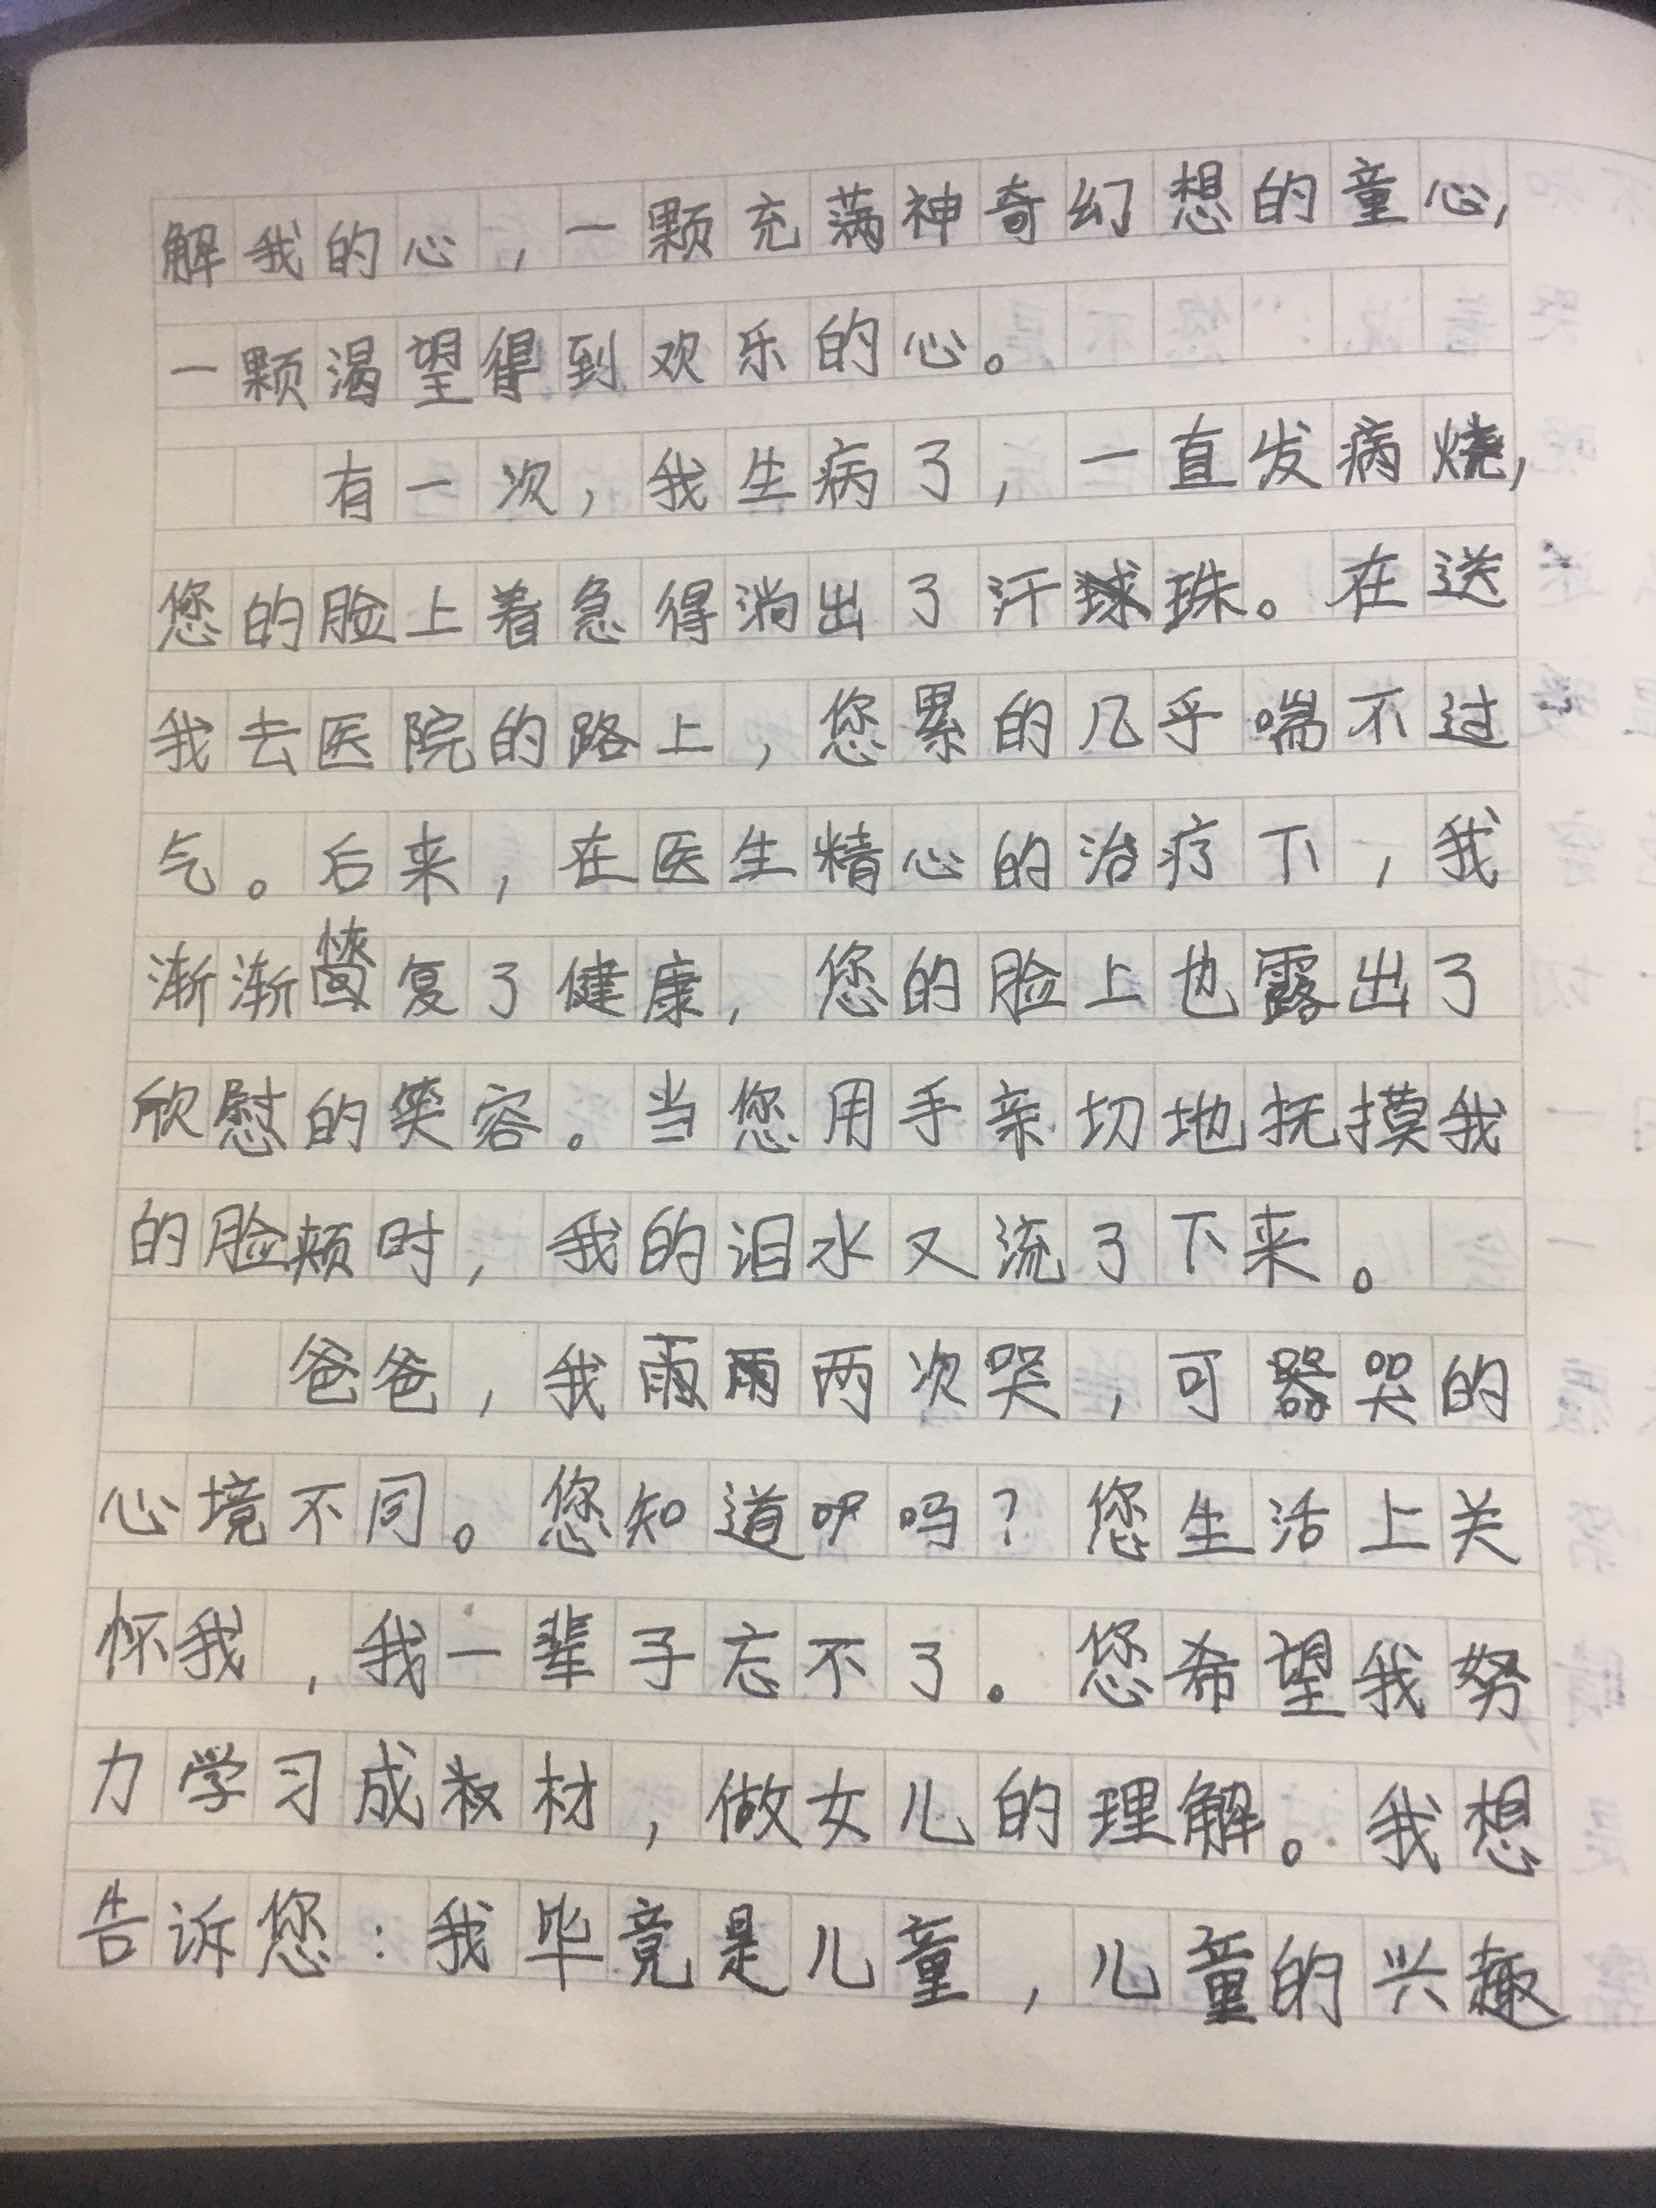 解我的心，一颗充满神奇幻想的童心，
一颗渴望得到欢乐的心。
有一次，我生病了，一直发病烧，
您的脸上着急得淌出了汗珠。在送
我去医院的路上，您累的几乎喘不过
气。后来，在医生精心的治疗下，我
渐渐恢复了健康，您的脸上也露出了
欣慰的笑容。当您用手亲切地抚摸我
的脸颊时，我的泪水又流了下来。
爸爸，我两次哭，可哭的
心境不同。您知道吗？您生活上关
怀我，我一辈子忘不了。您希望我努
力学习成材，做女儿的理解。我想
告诉您：我毕竟是儿童，儿童的兴趣